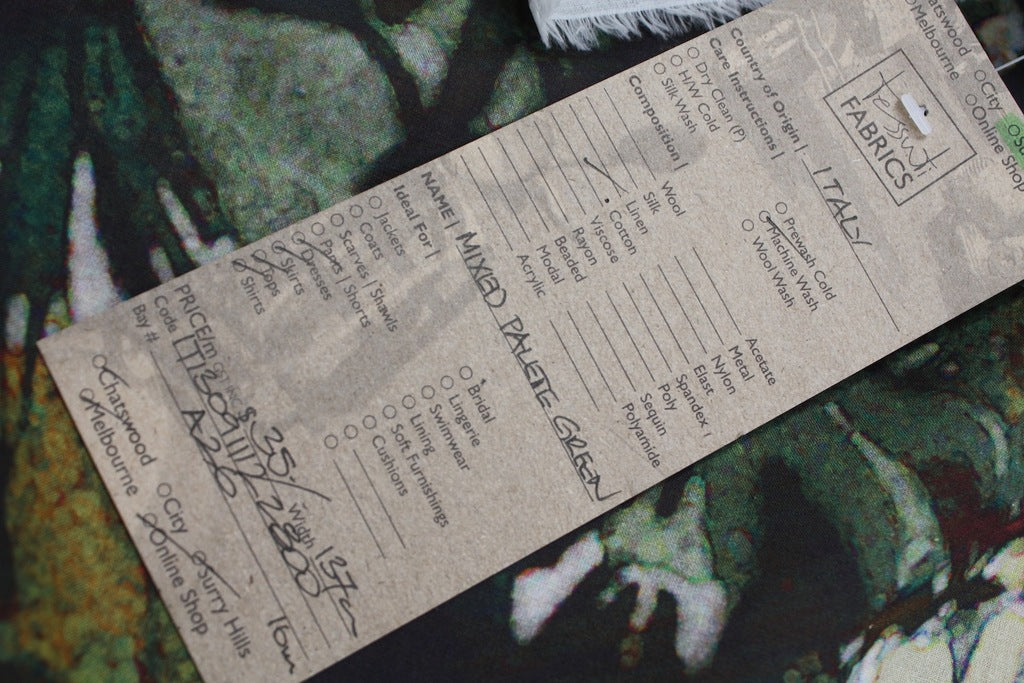 Tessuti
FABRICS
Country of Origin | ITALY
Care Instructions |
Dry Clean (P)
H/W Cold
Silk Wash
Prewash Cold
Machine Wash
Wool Wash
Composition |
Wool
Silk
Linen
Cotton
Viscose
Rayon
Beaded
Modal
Acrylic
Acetate
Metal
Nylon
Elast
Spandex |
Poly
Sequin
Polyamide
NAME | MIXED PALETTE GREEN
Ideal For |
Jackets
Coats
Scarves | Shawls
Pants | Shorts
Dresses
Skirts
Tops
Shirts
Bridal
Lingerie
Swimwear
Lining
Soft Furnishings
Cushions
PRICE/m $35.- Width 137cm
Code
Bay # A26 16m
Chatswood City Surry Hills
Melbourne Online Shop
City
Melbourne Online Shop